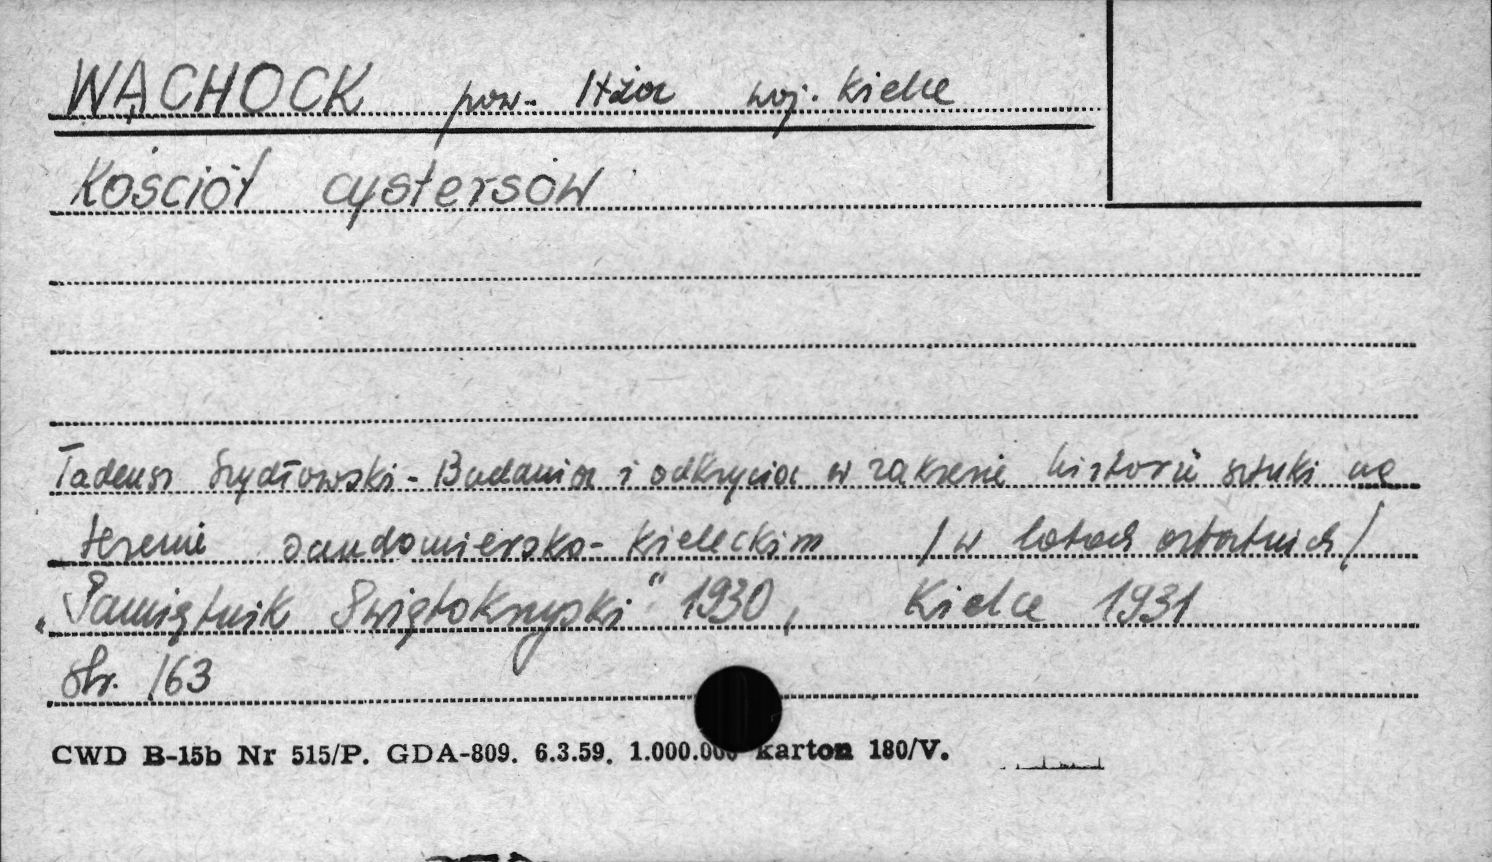 WĄCHOCK pow. Iłża woj. Kielce
Kościół cystersów
Tadeusz Szydłowski - Badania i odkrycia w zakresie historii sztuki na
terenie sandomiersko-kieleckim /w latach ostatnich/
„Pamiętnik Świętokrzyski" 1930, Kielce 1931
str. 163
CWD B-15b Nr 515/P. GDA-809. 6.3.59. 1.000.000 karton 180/V.